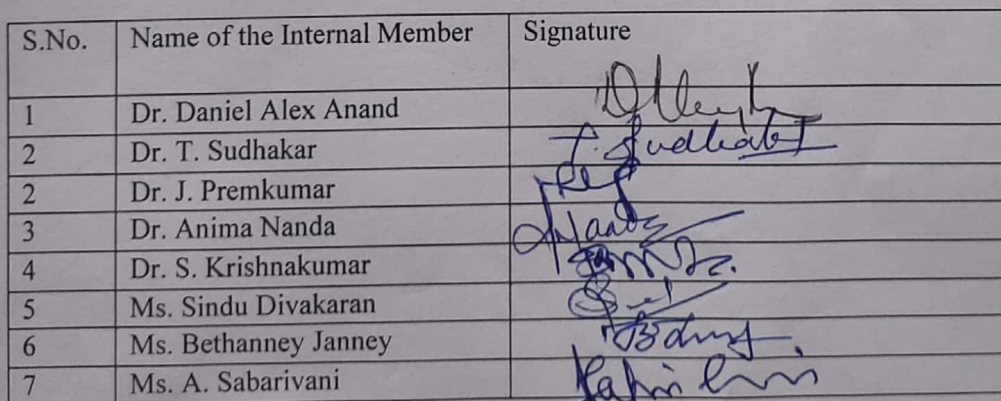 S.No. Name of the Internal Member Signature
1 Dr. Daniel Alex Anand
2 Dr. T. Sudhakar T. Sudhakar
2 Dr. J. Premkumar
3 Dr. Anima Nanda
4 Dr. S. Krishnakumar
5 Ms. Sindu Divakaran
6 Ms. Bethanney Janney
7 Ms. A. Sabarivani